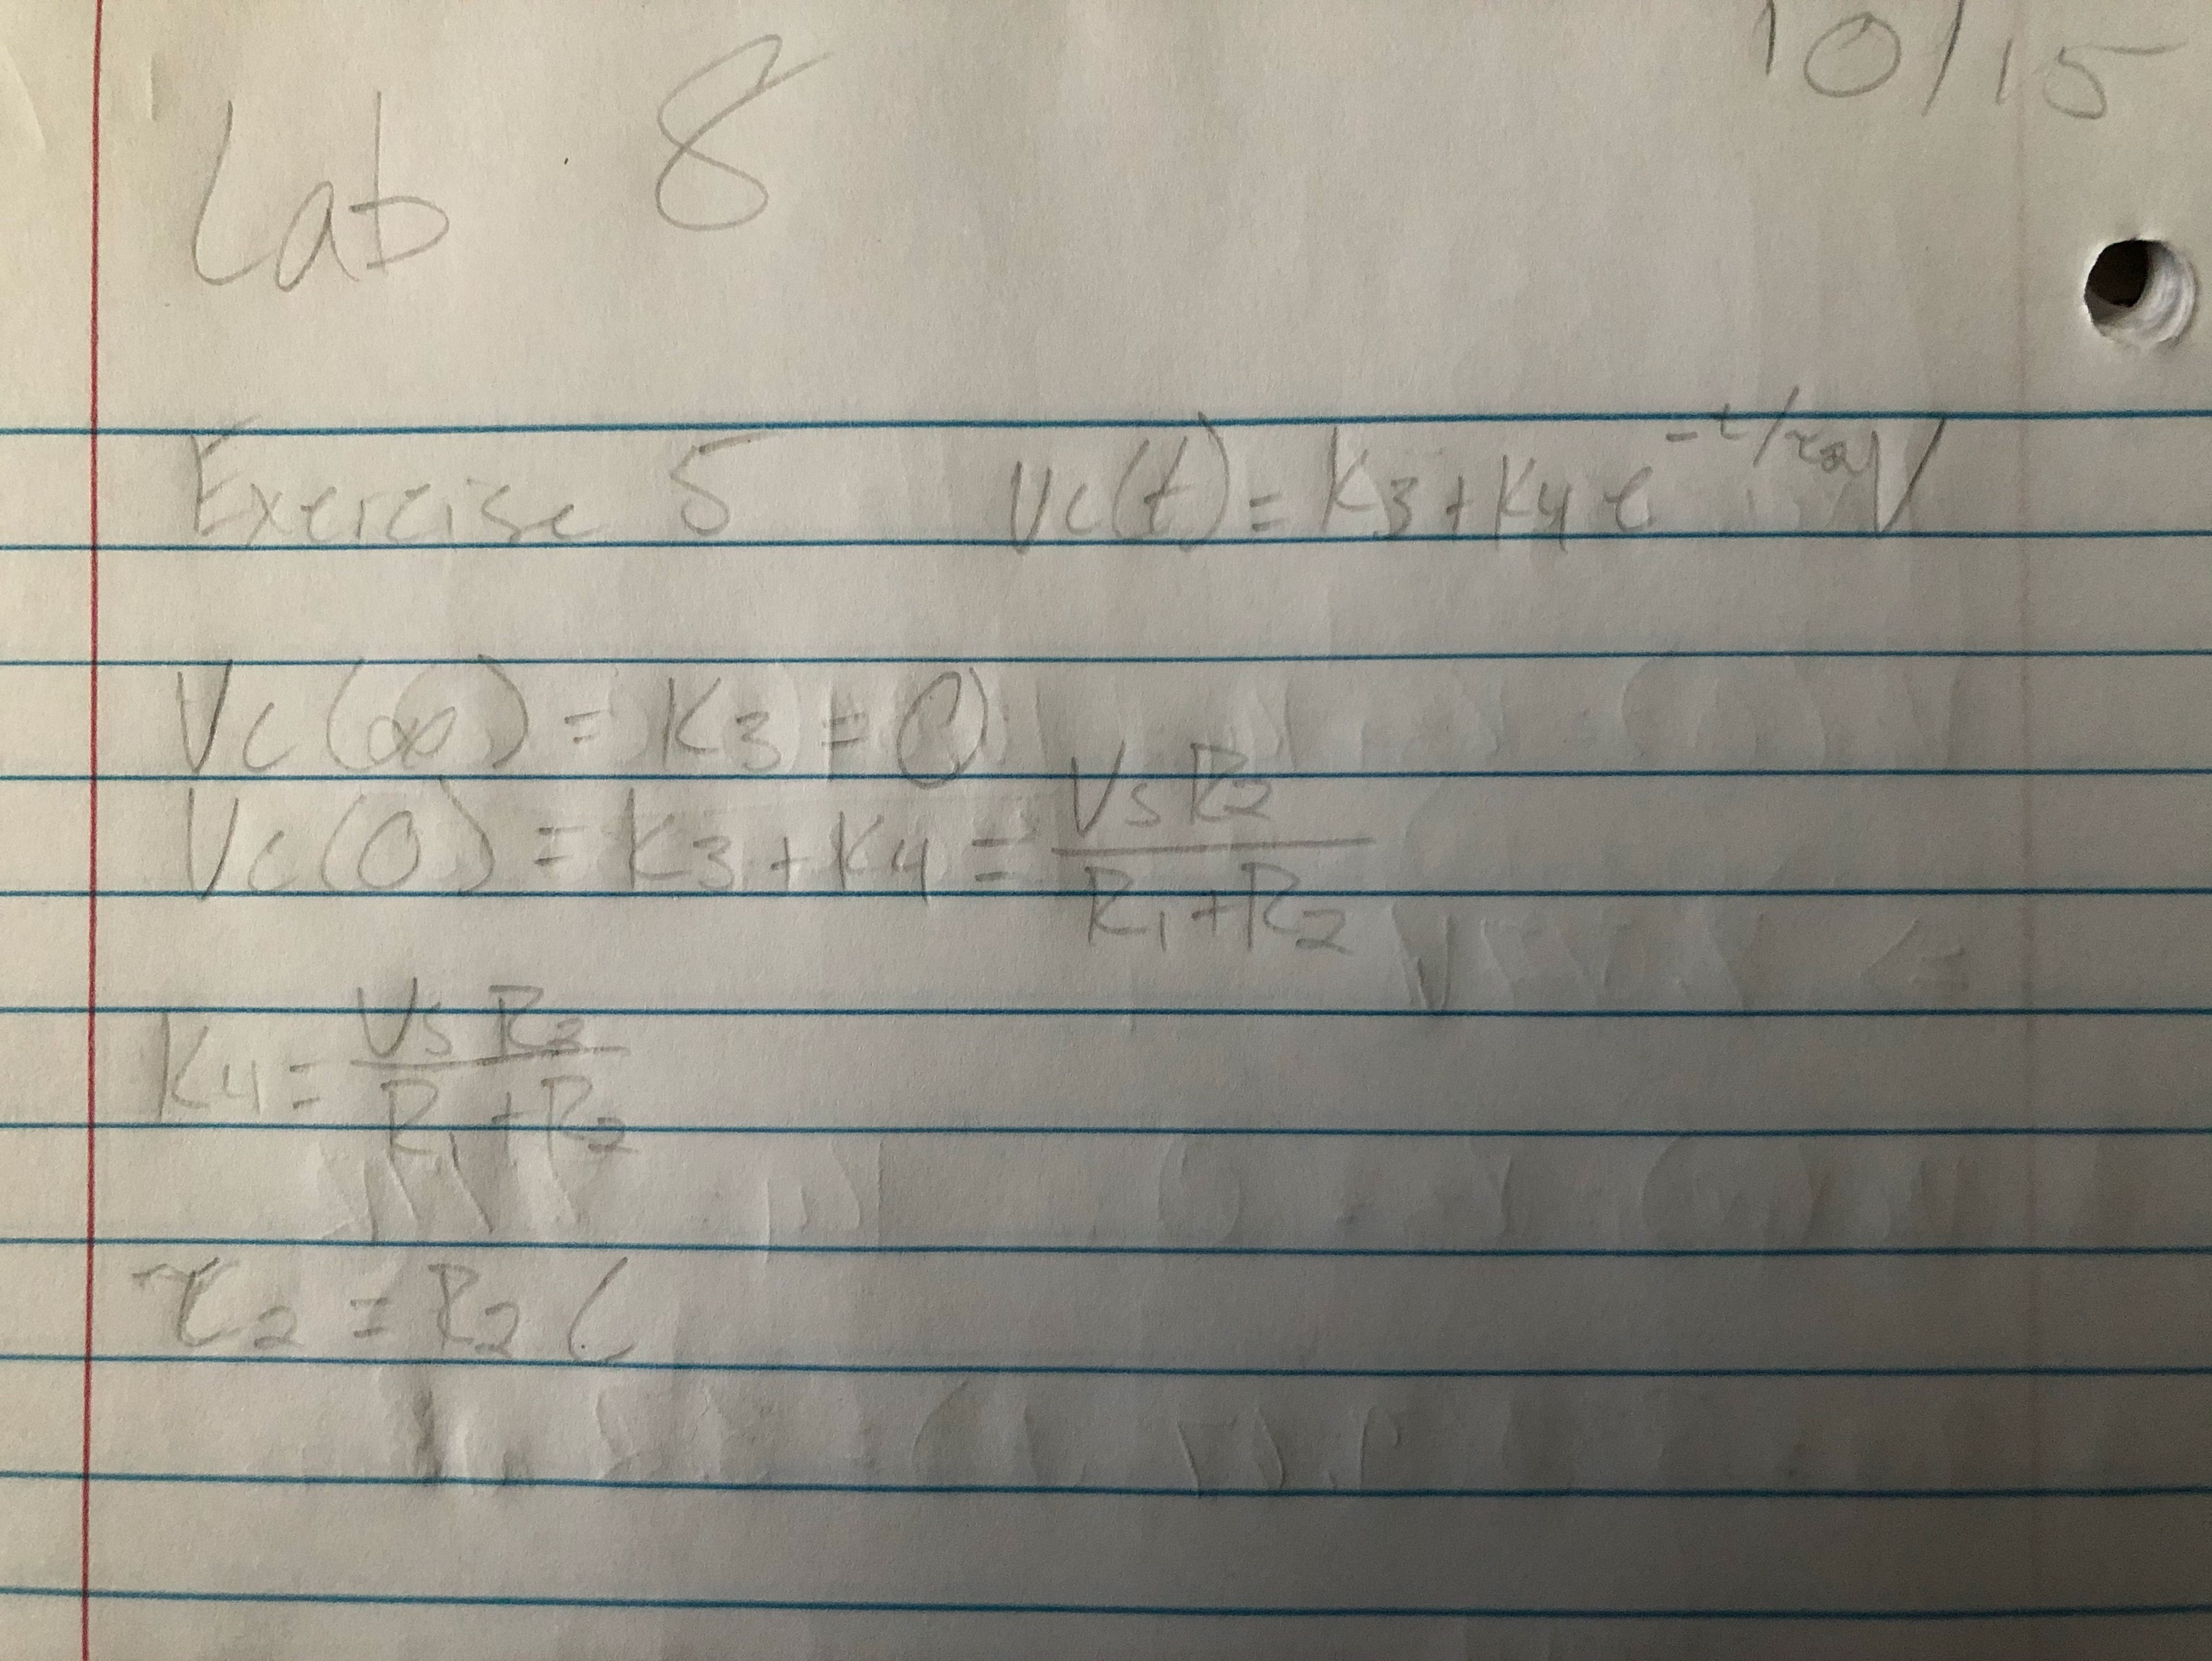 10/15
Lab 8
Exercise 5 Vc(t) = K3 + K4 e^-t/τ2 V
Vc(∞) = K3 = 0
Vc(0) = K3 + K4 = Vs R2 / R1 + R2
K4 = Vs R2 / R1 + R2
τ2 = R2 C